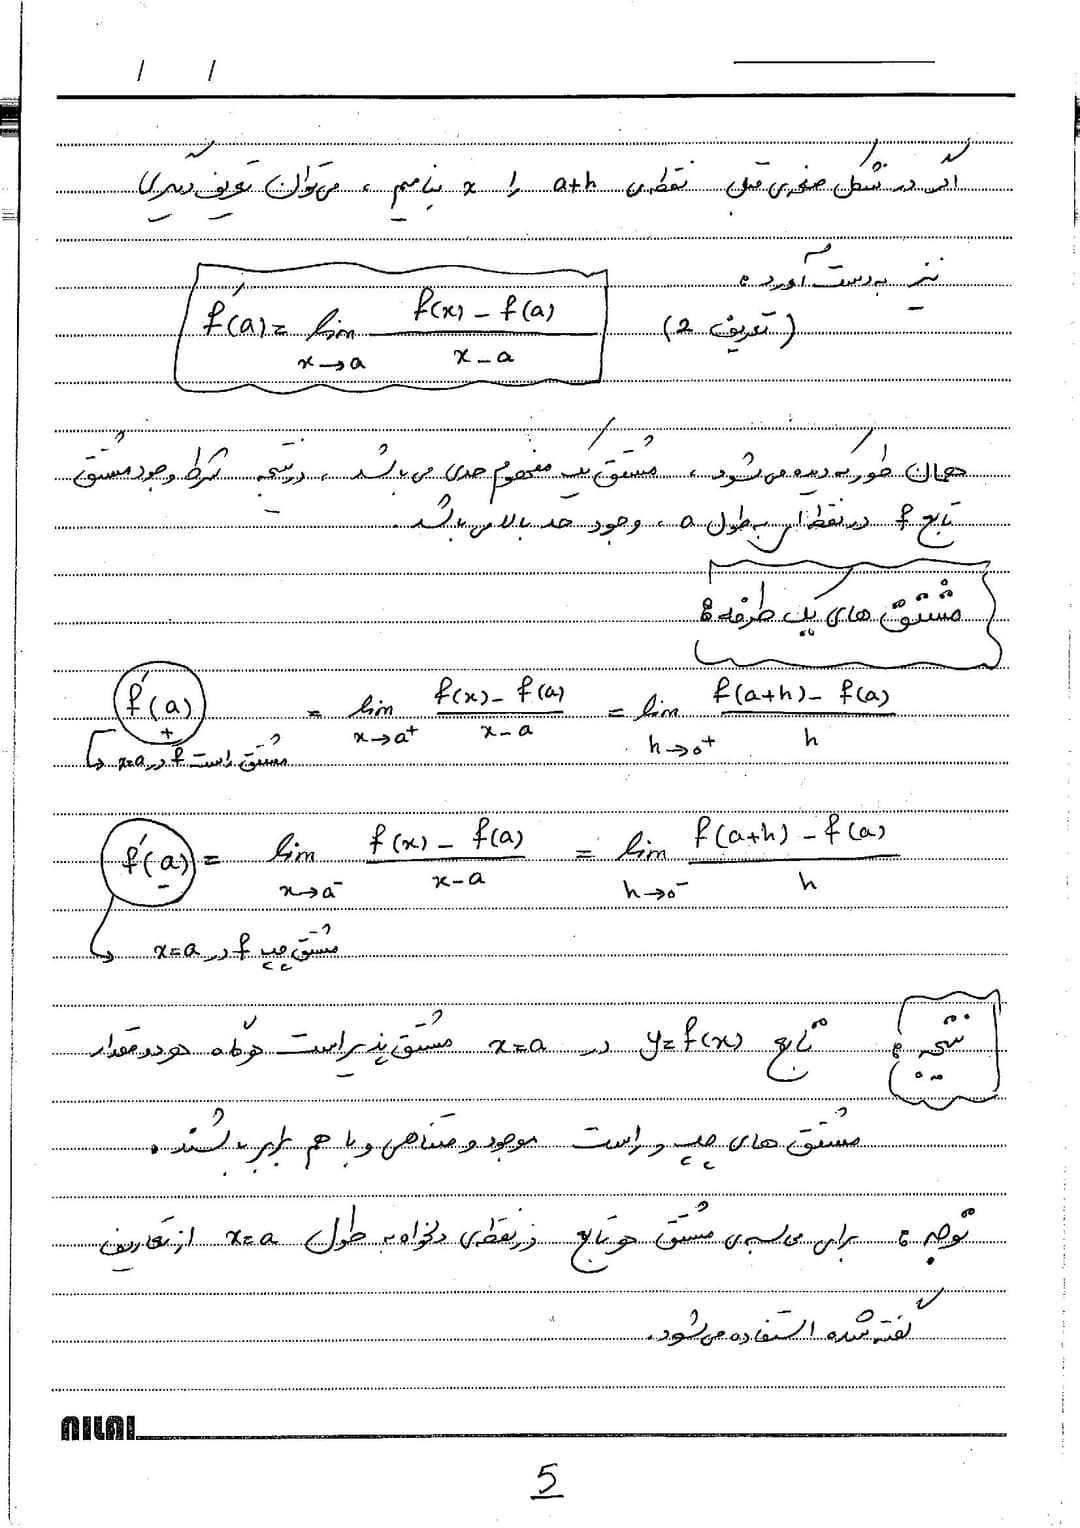 / /
اگر در شکل صفحه‌ی قبل نقطه‌ی a+h را x بنامیم ، می‌توان تعریف دیگری
نیز به‌دست آورد :
(تعریف 2) f'(a) = lim x→a (f(x) - f(a)) / (x - a)
همان طور که دیده می‌شود ، مشتق یک مفهوم حدی می باشد ، در نتیجه شرط وجود مشتق
تابع f در نقطه‌ای به طول a ، وجود حد بالا می باشد .
مشتق های یک طرفه :
f'₊(a) = lim x→a⁺ (f(x) - f(a)) / (x - a) = lim h→0⁺ (f(a+h) - f(a)) / h
مشتق راست f در x=a
f'₋(a) = lim x→a⁻ (f(x) - f(a)) / (x - a) = lim h→0⁻ (f(a+h) - f(a)) / h
مشتق چپ f در x=a
نتیجه : تابع y=f(x) در x=a مشتق پذیر است هرگاه هر دو مقدار
مشتق های چپ و راست موجود و متناهی و با هم برابر باشند .
توجه : برای محاسبه‌ی مشتق هر تابع در نقطه‌ی دلخواه به طول x=a از تعاریف
گفته شده استفاده می‌شود .
NILAI
5